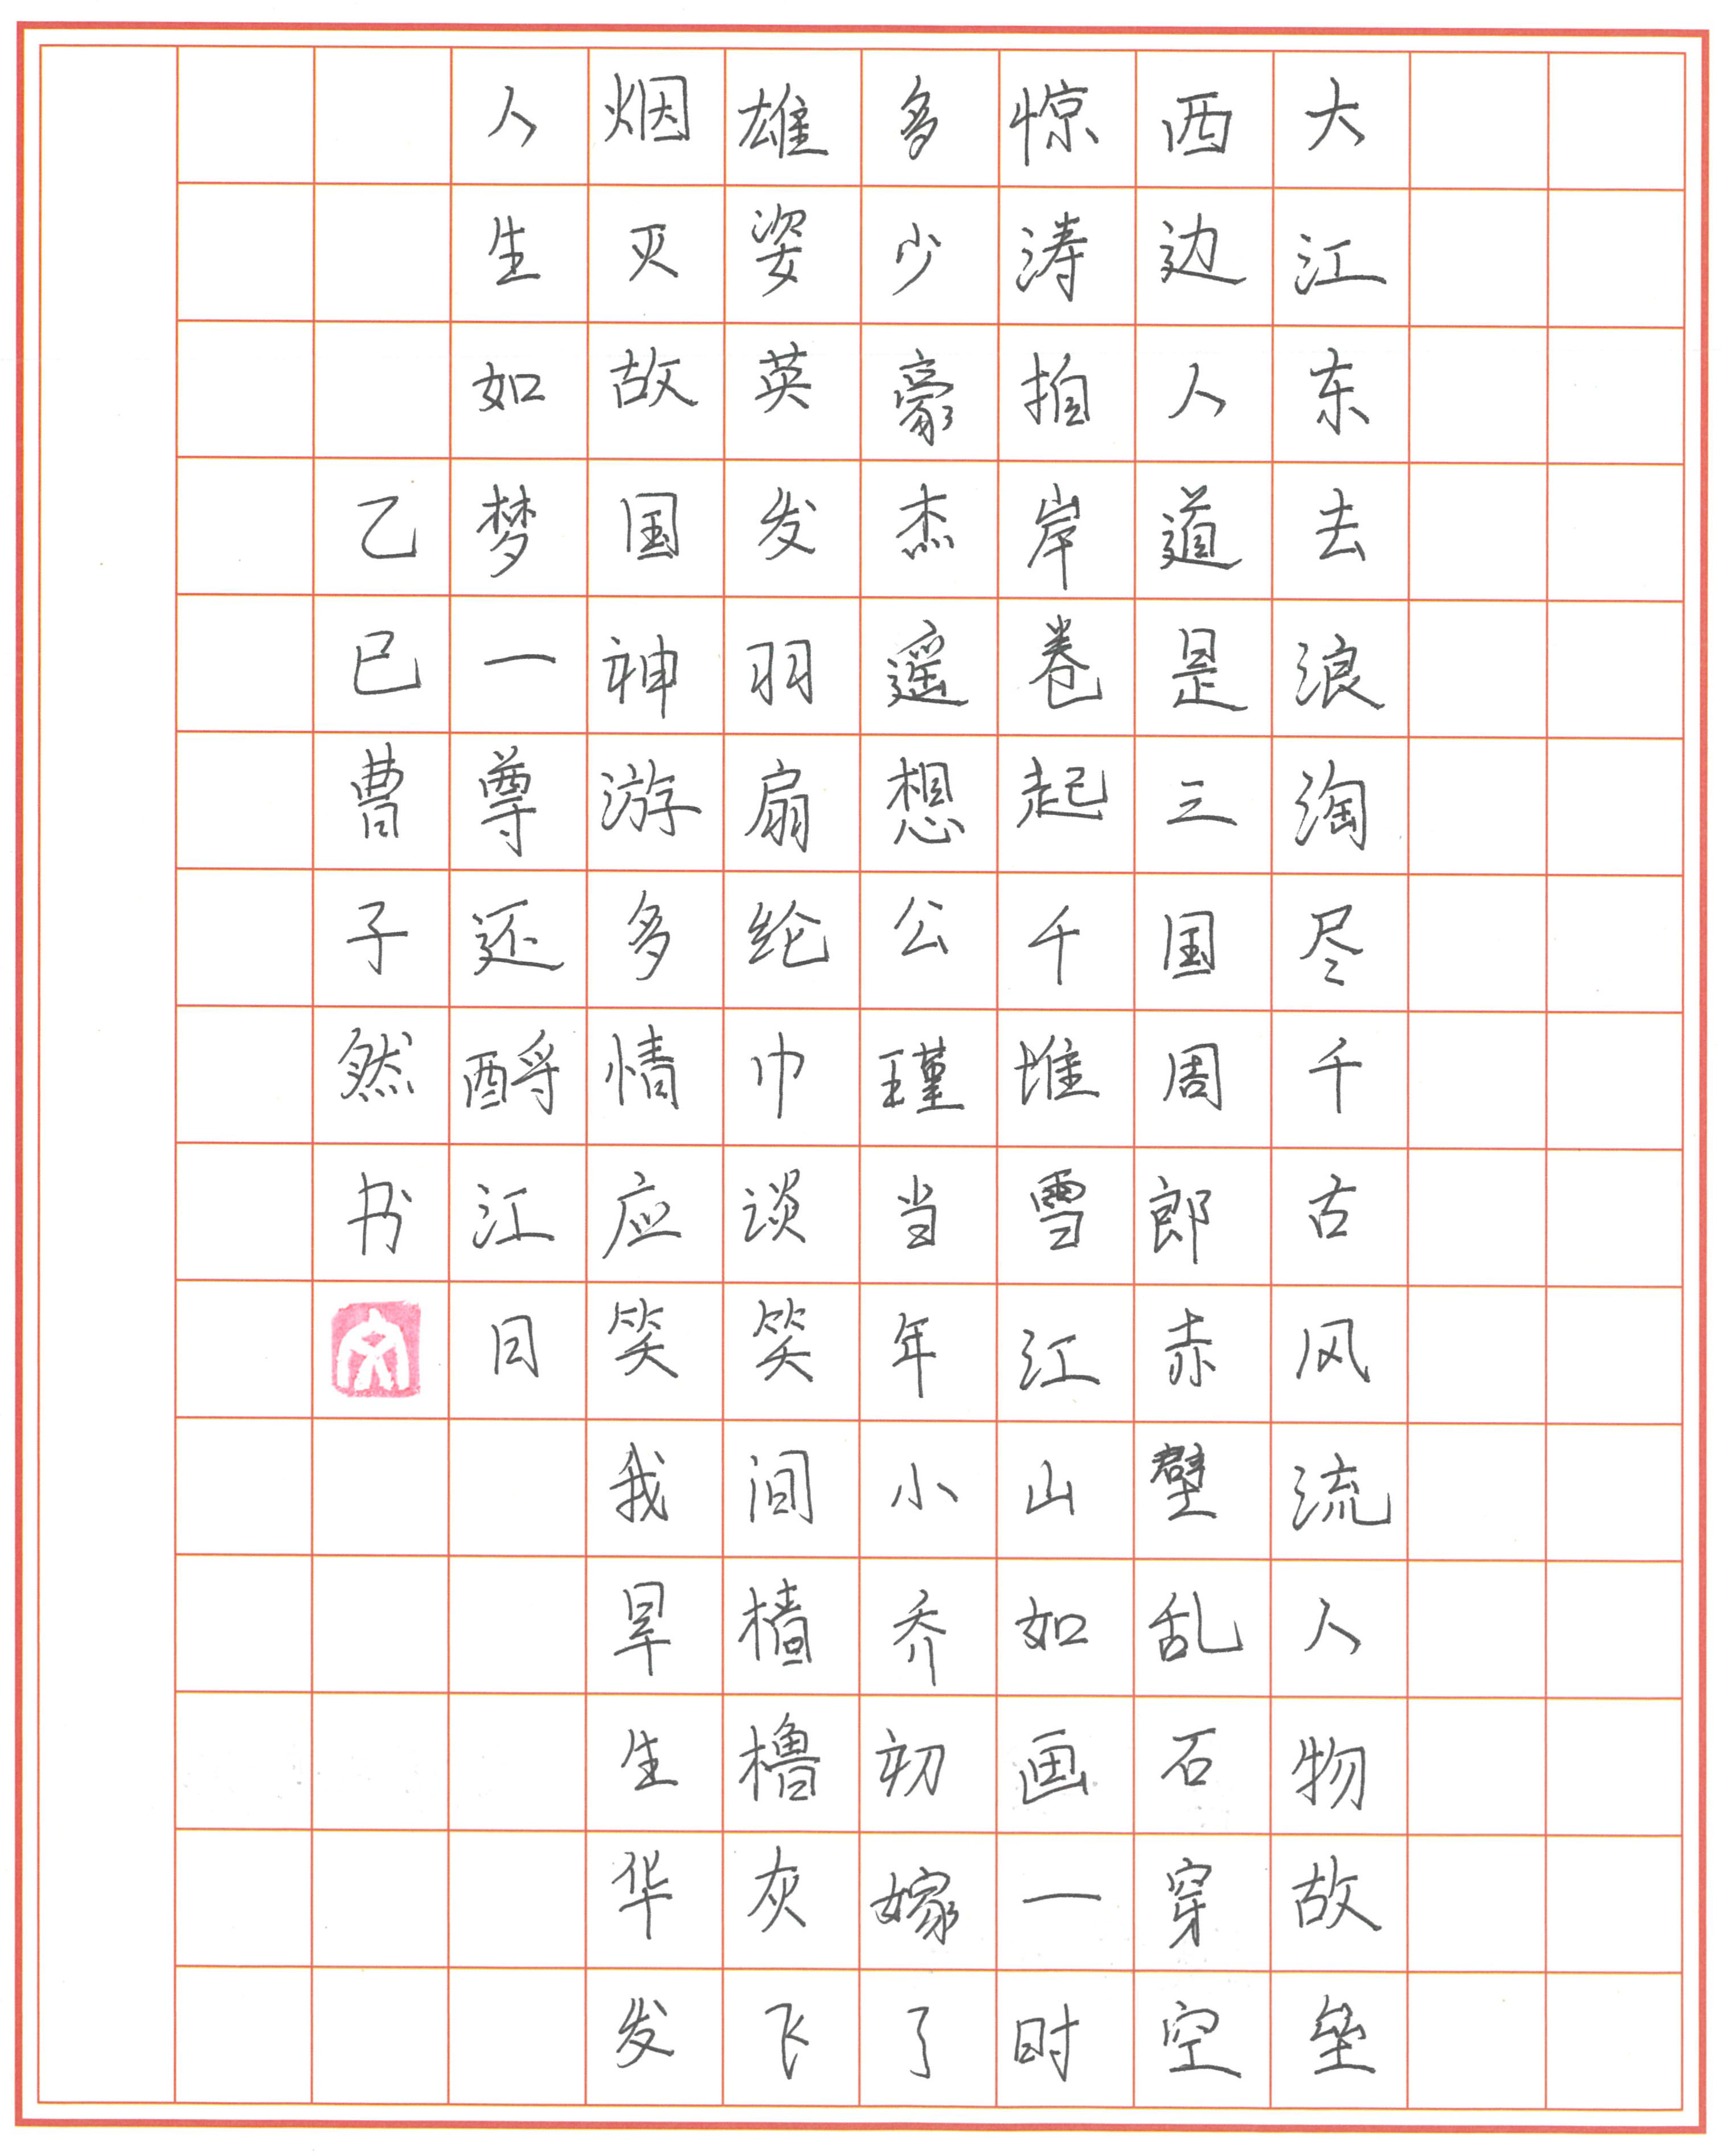 大江东去浪淘尽千古风流人物故垒
西边人道是三国周郎赤壁乱石穿空
惊涛拍岸卷起千堆雪江山如画一时
多少豪杰遥想公瑾当年小乔初嫁了
雄姿英发羽扇纶巾谈笑间樯橹灰飞
烟灭故国神游多情应笑我早生华发
人生如梦一尊还酹江月
乙巳曹子然书